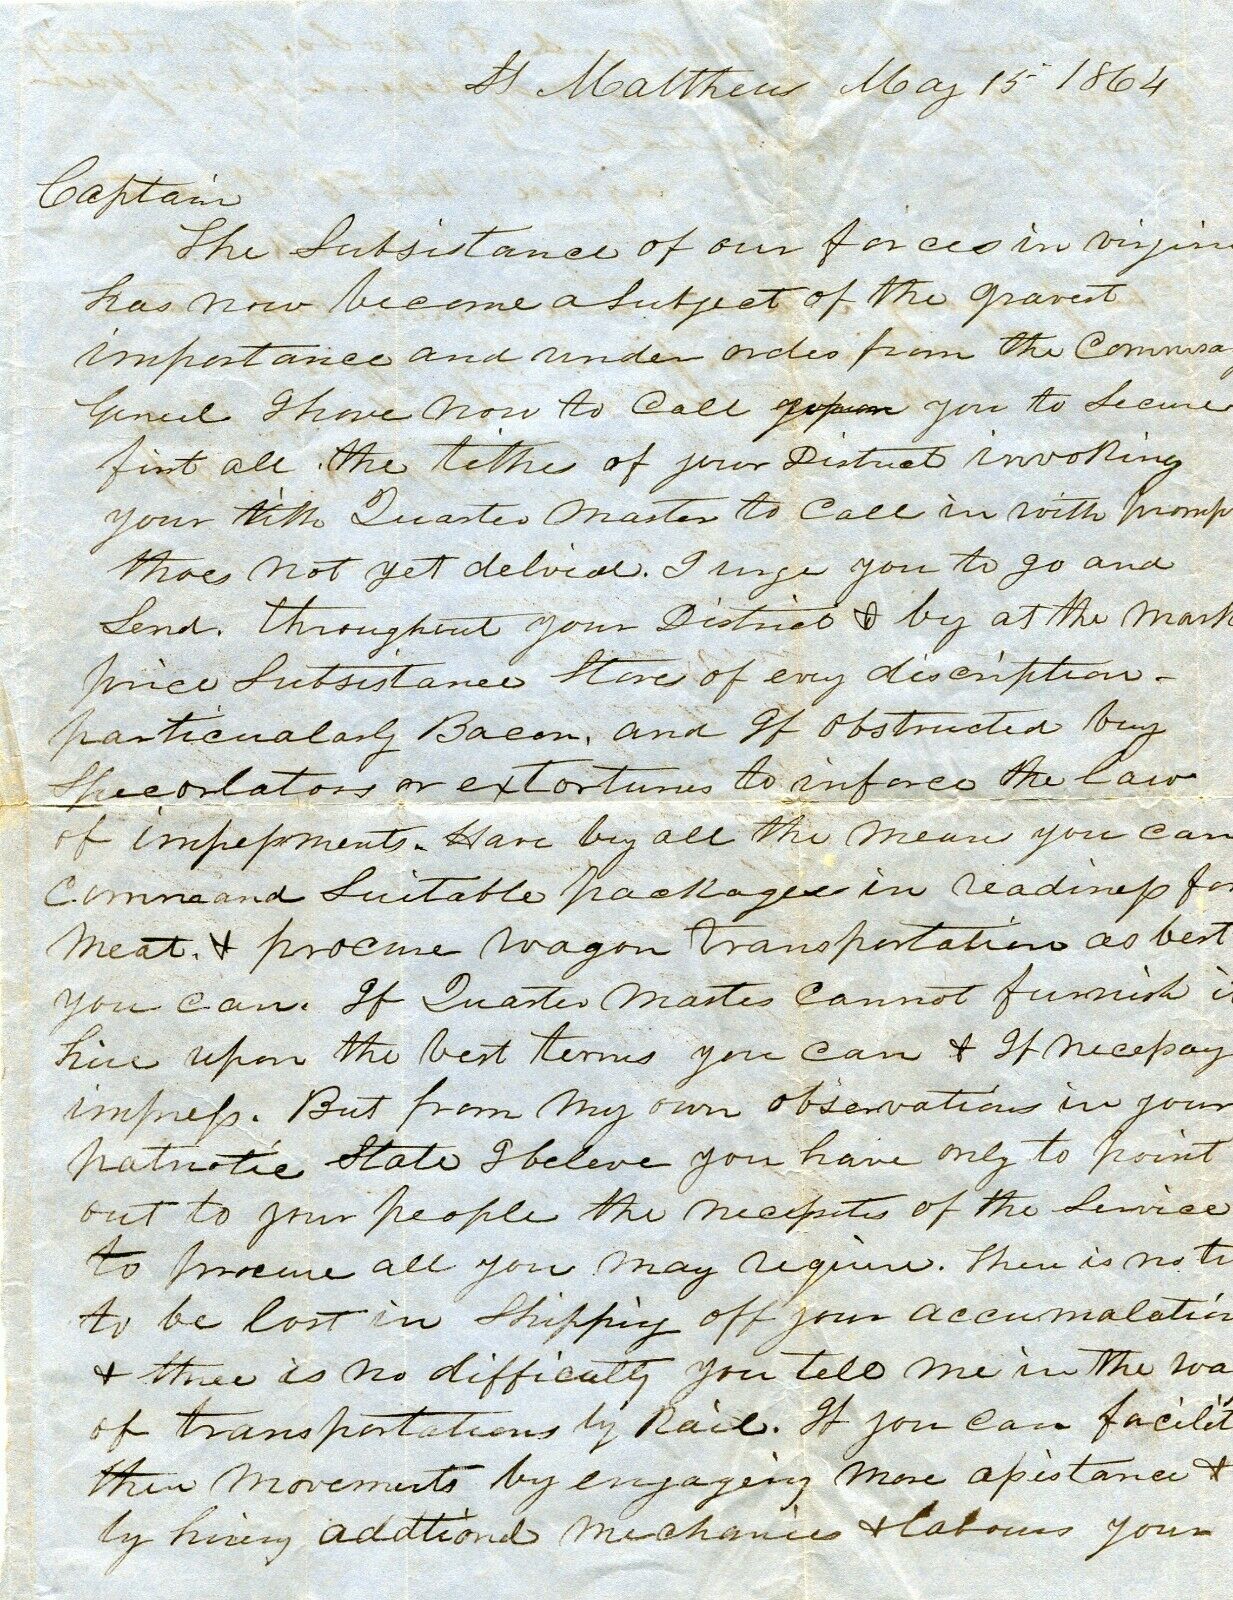 St Matthews May 15 1864
Captain
The Subsistance of our forces in virgin
has now become a Subject of the gravest
importance and under ordes from the Commisa
Geneel I have now to Call upon you to Secure
first all the tithe of your District invoking
your tith Quarter Master to Call in with promp
thoes not yet delvied. I urge you to go and
Send. throughout your District & by at the Mark
price Subsistance Store of evry discription -
particualarly Bacon, and If obstructed buy
Specorlators or extortunes to inforce the law
of impessments. Have by all the means you can
Command Suitable packages in readiness for
Meat. & procure wagon transportation as best
you can. If Quarter Mastes cannot furnish i
hire upon the best terms you can & If necessay
impress. But from my own observations in your
patriotic State I beleve you have only to point
out to your people the necessites of the Service
to procure all you may require. There is no ti
to be lost in Shipping off your accumalation
& thiee is no difficulty you tell me in the wa
of transportations by Rail. If you can facilit
thier movements by engaging more assistance &
by hireng addtional mechanics & labours your